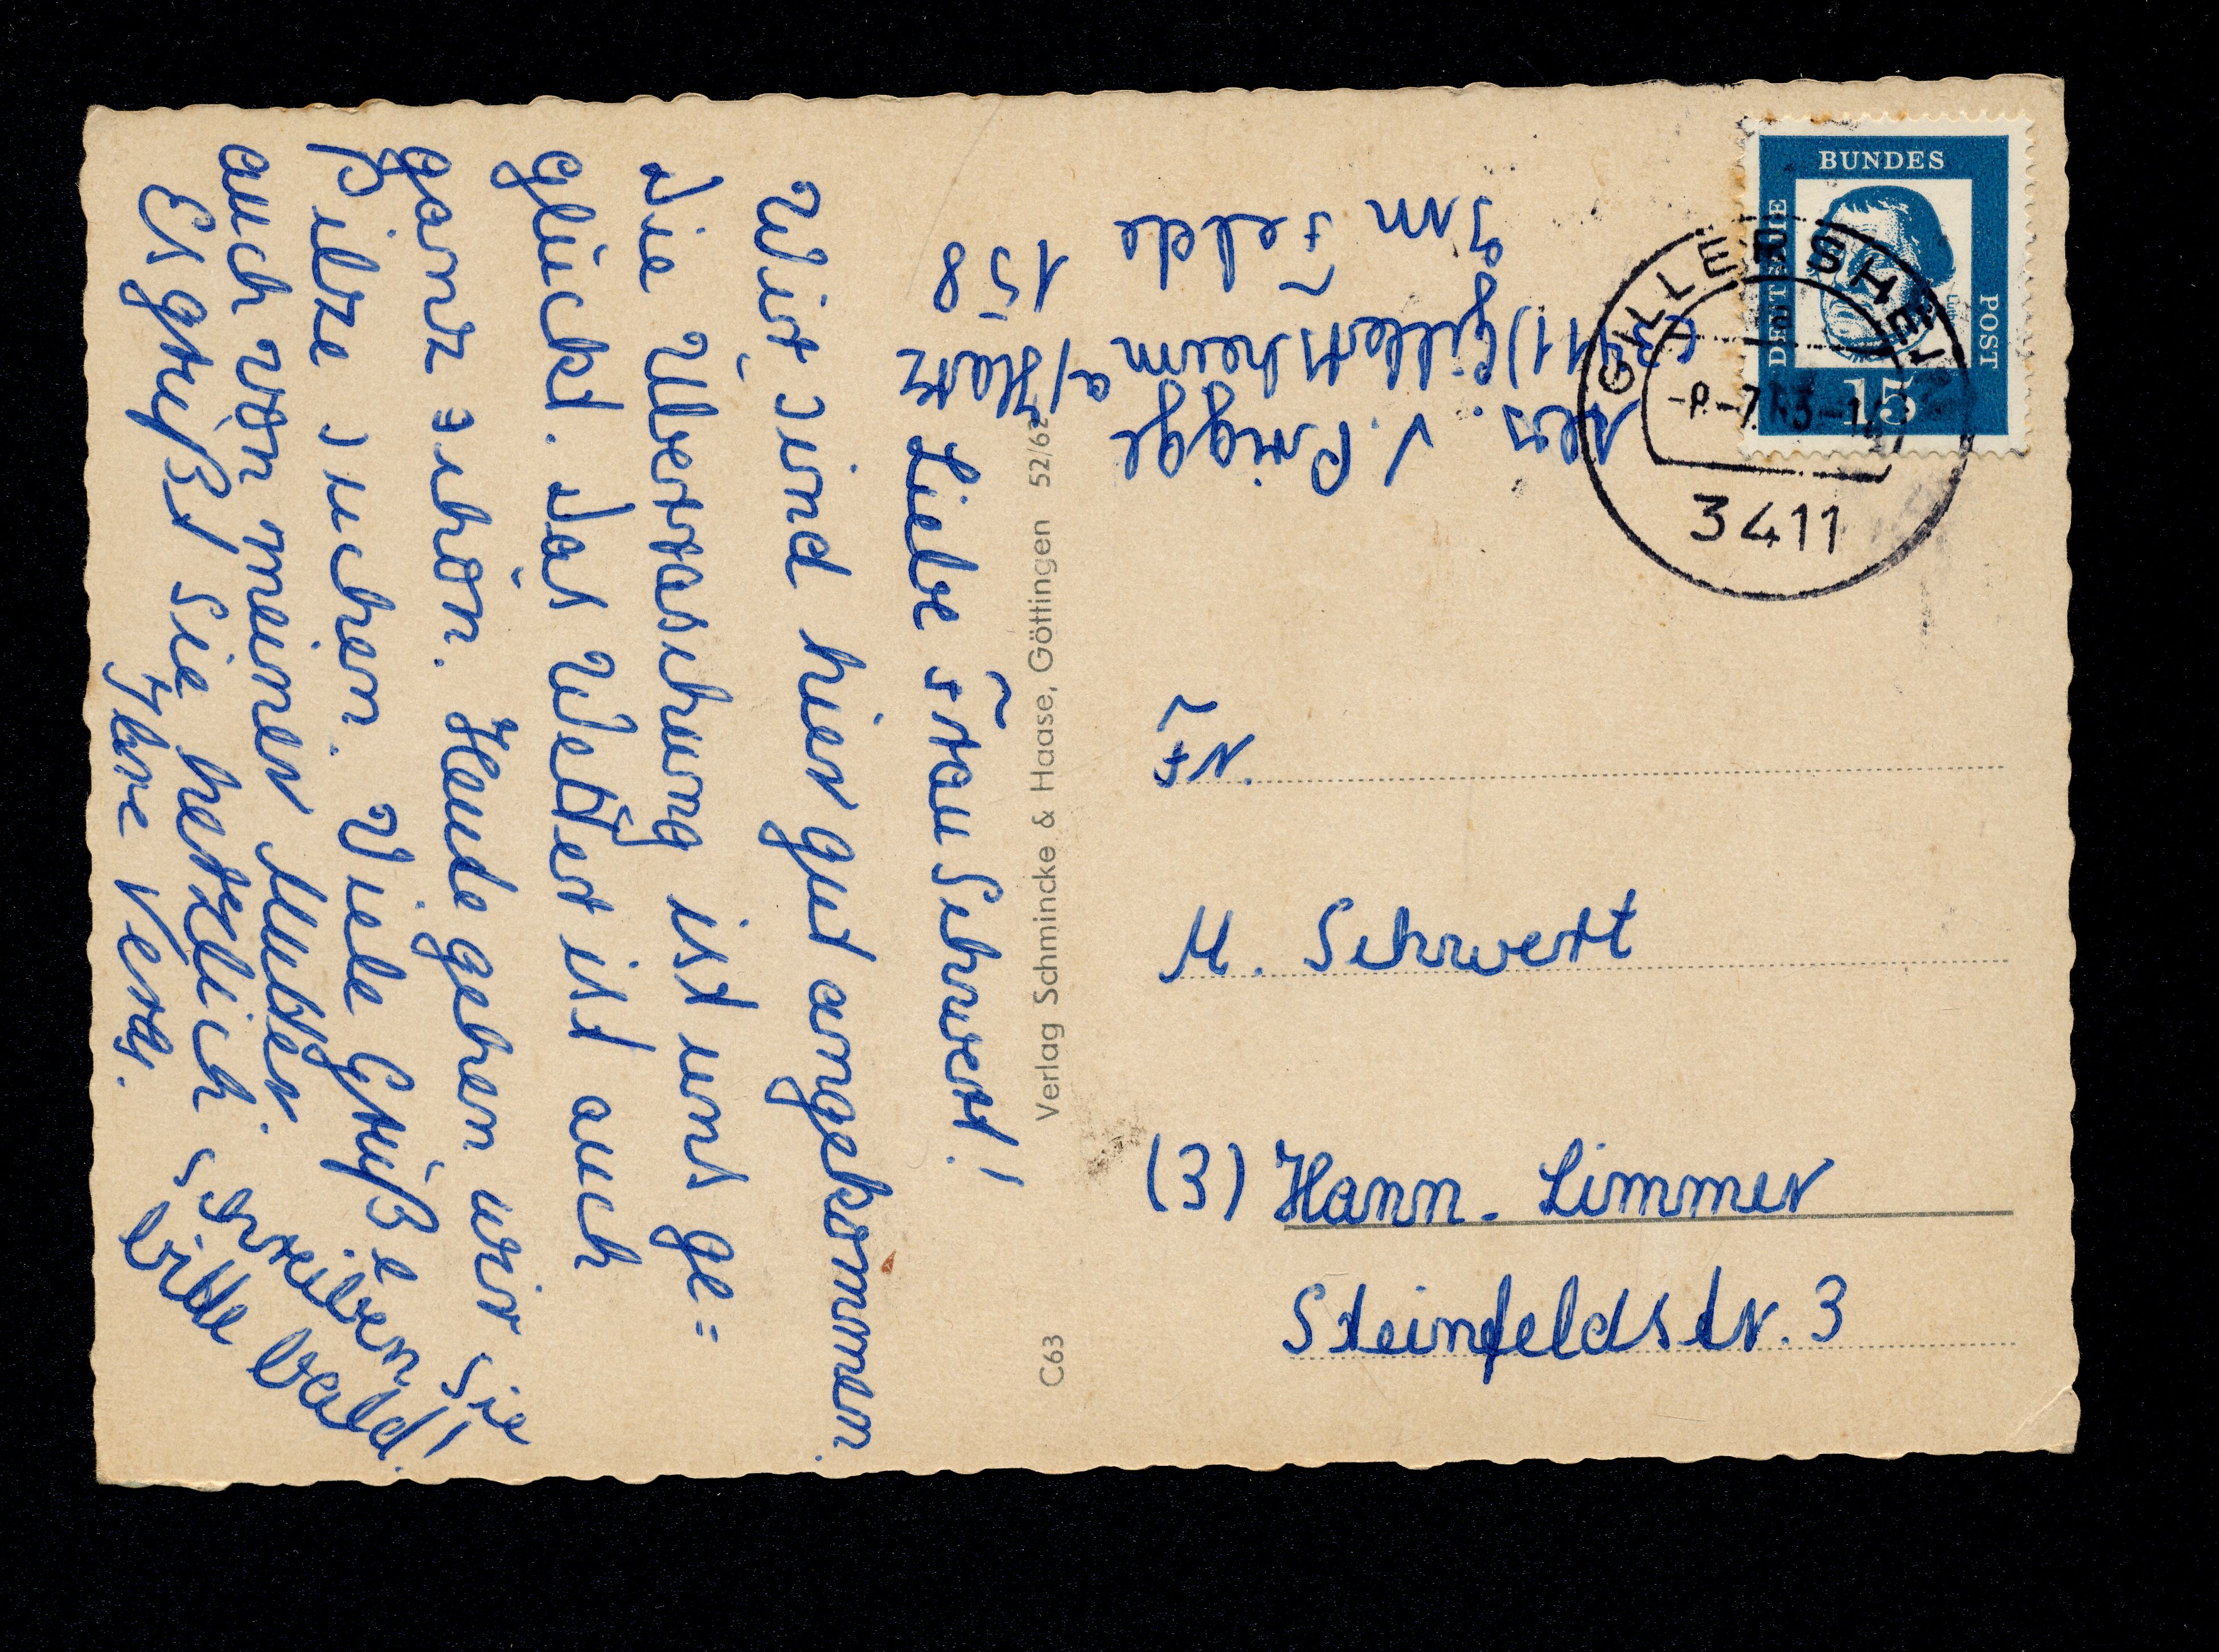 Liebe Frau Schwert!
Wir sind hier gut angekommen.
die Überraschung ist uns ge=
glückt. das Wetter ist auch
ganz schön. Heute gehen wir
Pilze suchen. Viele Grüße sie
auch von meiner Mutter.
Es grüßt Sie herzlich
Ihre Vera.
schreiben
bitte bald!
Abs.
V. Prigge
(3411) Gillersheim
a/Harz
Im
Felde
158
Verlag Schmincke & Haase, Göttingen 52/62
C63
BUNDES
POST
DEUTSCHE
15
GILLERSHEIM
3411
Fr.
M. Schwert
(3) Hann. Limmer
Steinfeldstr. 3